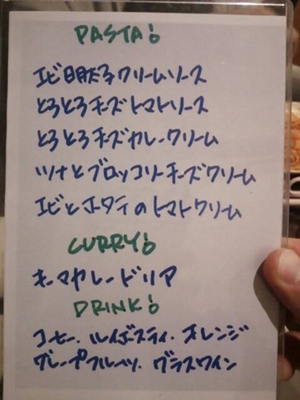 PASTA!
エビ明太子クリームソース
とろとろチーズトマトソース
とろとろチーズカレークリーム
ツナとブロッコリーチーズクリーム
エビとホタテのトマトクリーム
CURRY!
キーマカレードリア
DRINK!
コーヒー・ルイボスティ・オレンジ
グレープフルーツ・グラスワイン